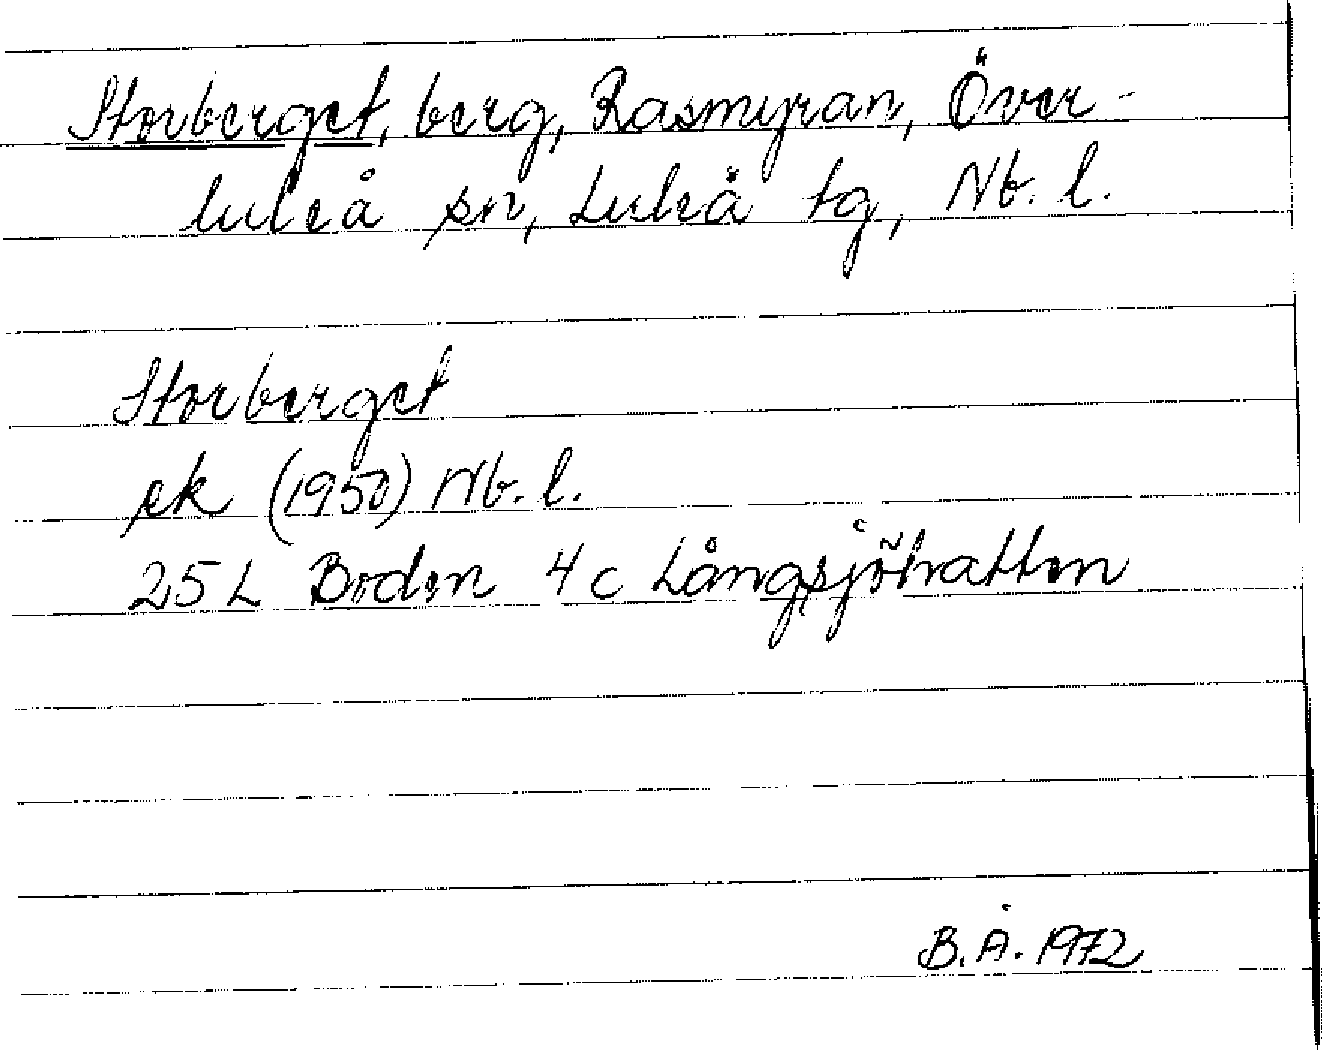 Storberget, berg, Rasmyran, Över-
luleå sn, Luleå tg, Nb. l.
Storberget
ek (1950) Nb. l.
25 L Boden 4 c Långsjötratten
B.Å. 1972